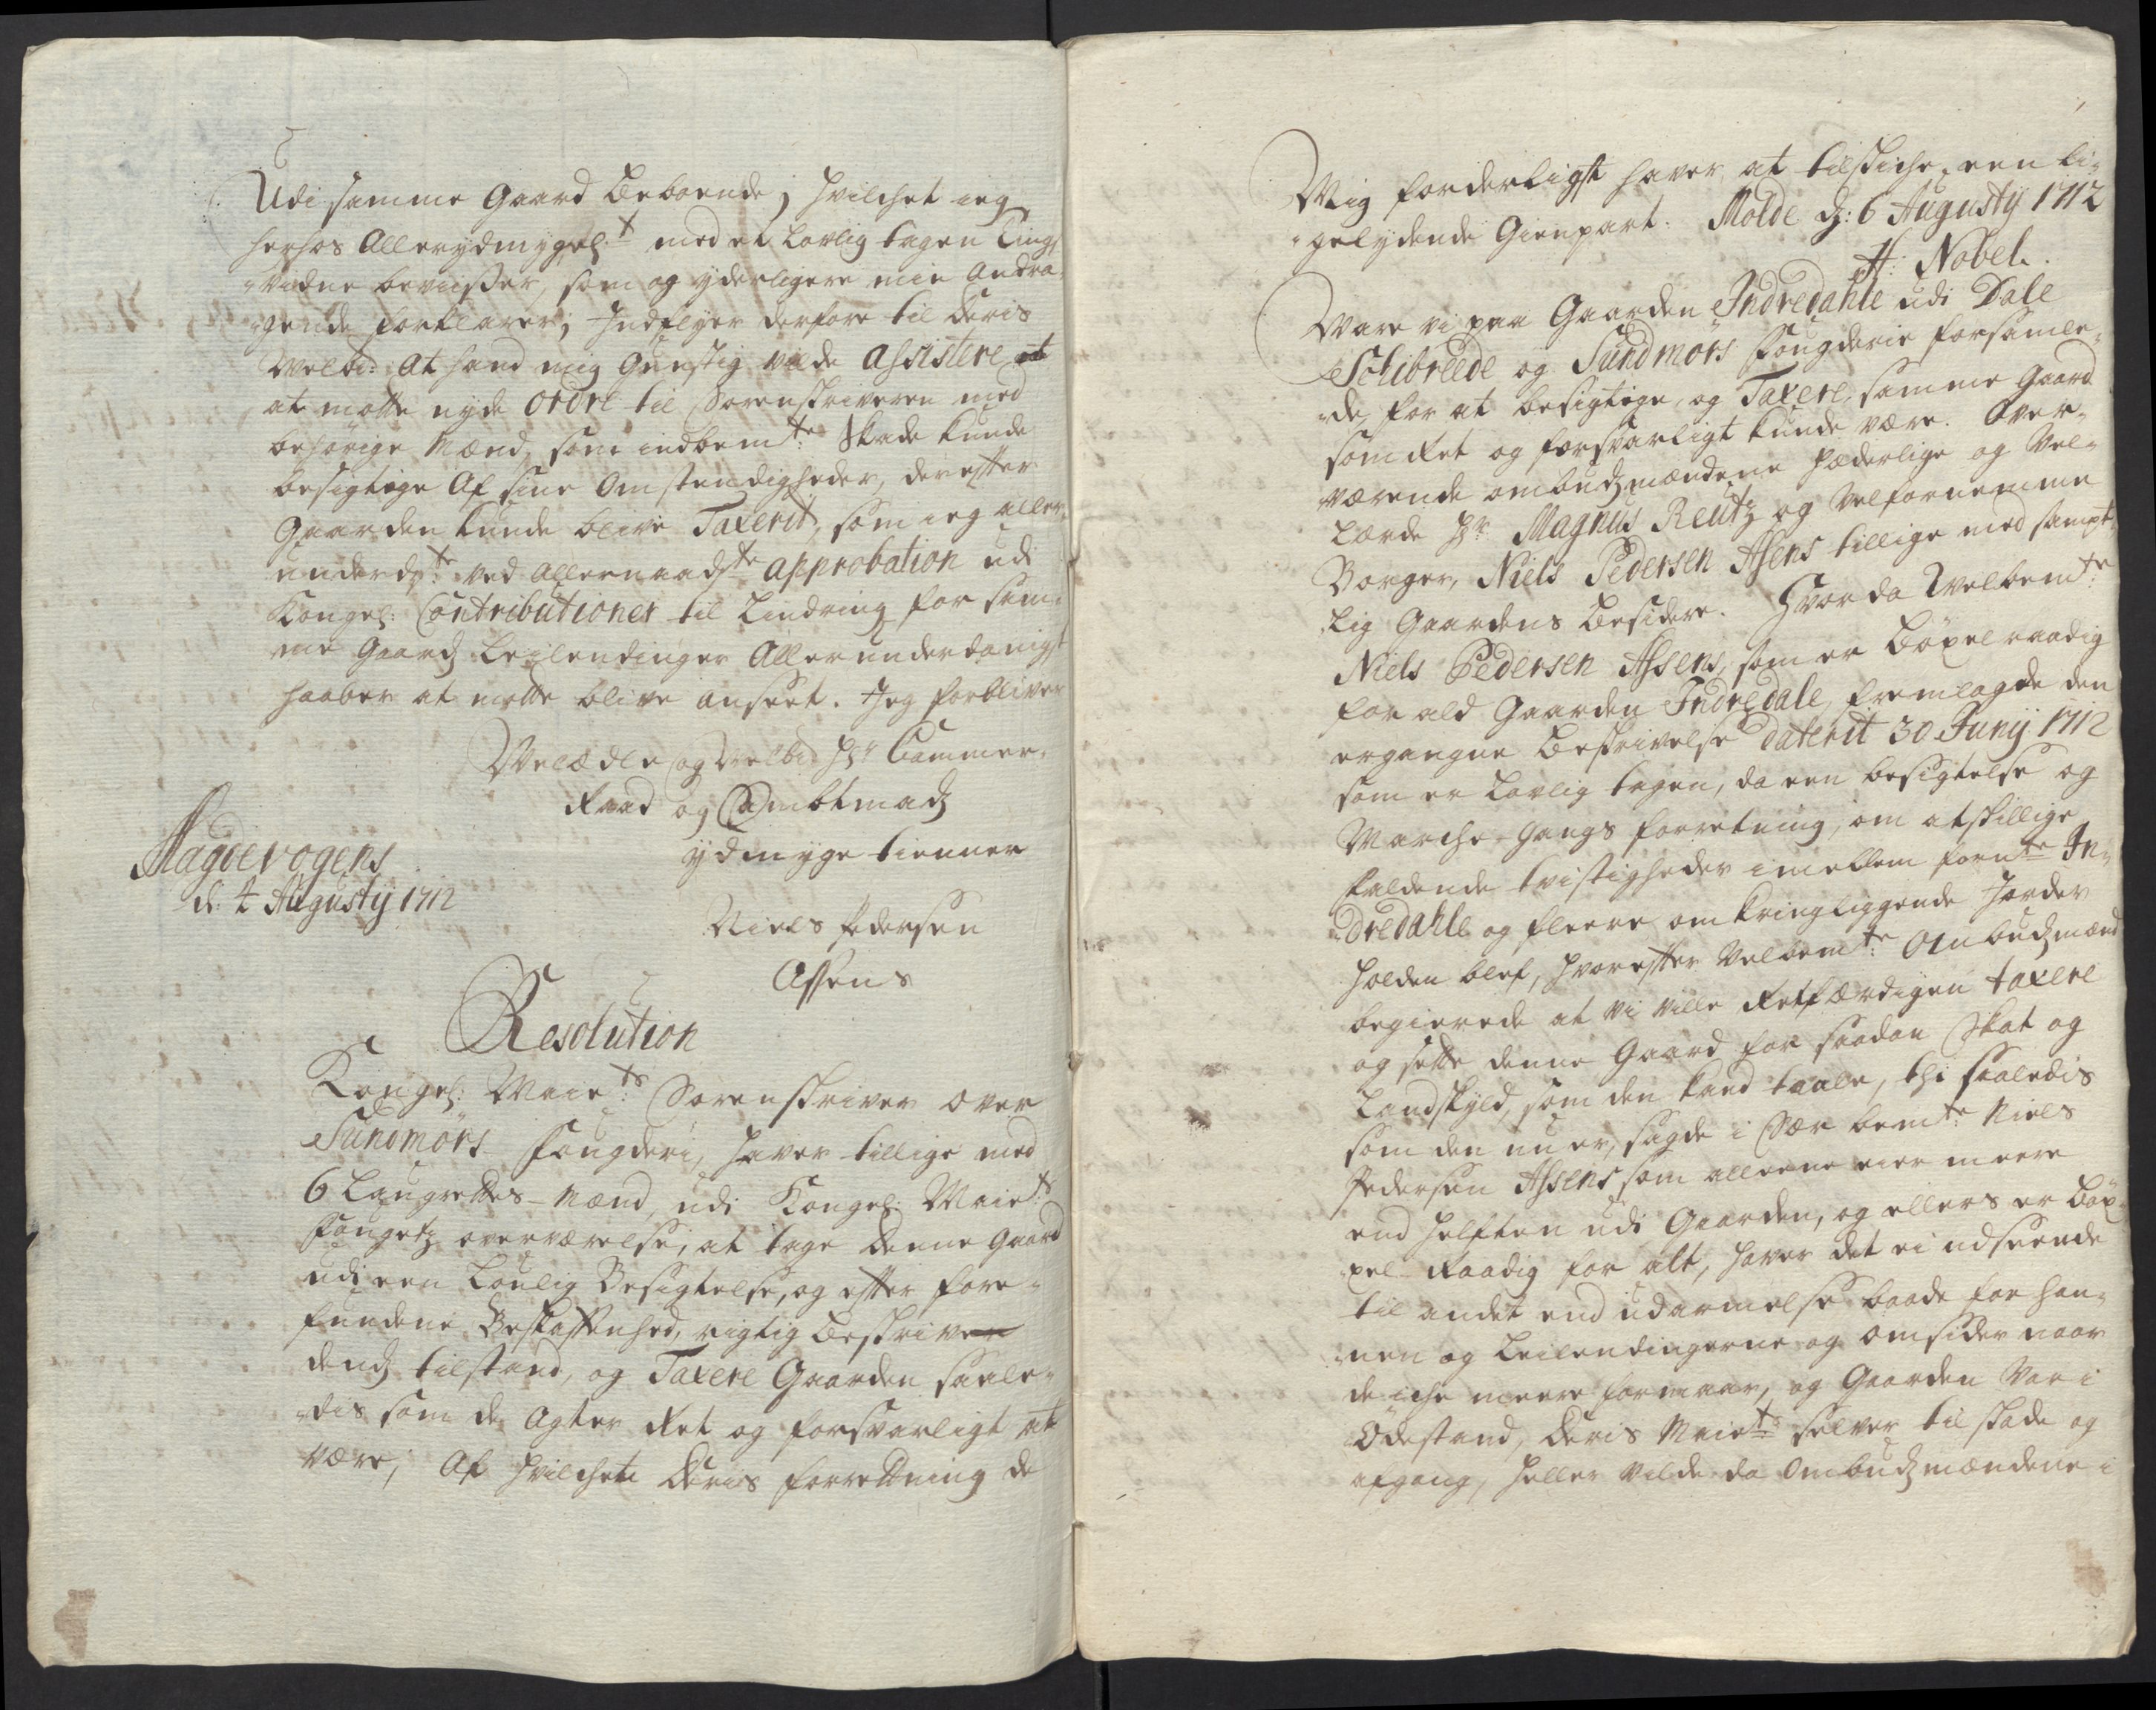 Udi samme Gaard beboende; hvilchet ieg
herhos Allerydmygel:t med et lovlig tagen Tings
Vidne beviisser, som og yderligere min Andra-
gende forklarer; Indflyer derfore til Deris
Welbd: At hand mig Gunstig vilde Assistere
at motte nyde Ordre til Sorenskriveren med
behörige Mænd, som indbem:te Skade kunde
besigtige Af sine Omstendigheder, derefter
Gaarden kunde blive Taxerit, som ieg aller-
underd:te ved Allernaadste approbation udi
Kongel: Contributioner til Lindring for sam-
me Gaardz Leilendinger Allerunderdanigst
haaber at motte blive anseet. Jeg forbliver
Velædle og Velbd Hr Cammer-
Raad og Ambtmandz
ydmyge tienner
Magdevogens
d: 4 Augusty 1712
Niels Pedersen
Assens
Resolution
Kongel: Maiets: Sorenskriver over
Sundmörs Fougderi, haver tillige med
6 Laugrettes-Mænd, udi Kongel: Maiets:
Fougetz overværelse, at tage denne Gaard
udi een Loulig Besigtelse, og efter fore-
fundene Beskaffenhed, rigtig beskrive
dendz tilstand, og Taxere Gaarden saale-
dis som de Agter Ret og forsvarligt at
være; Af hvilchete Deris forrettning de
Mig forderligst haver at tilskiche een li-
gelydende Gienpart. Molde d: 6 Augusty 1712
H: Nobel.
Ware vi paa Gaarden Indredahle udi Dale
Schibreede og Sundmörs Fougderie forsamle-
de, for at besigtige, og Taxere, samme Gaard
som Ret og forsvarligt kunde være. Over-
værende ombudzmændene Hæderlige og Vel-
lærde Hr Magnus Reutz og Velfornemme
Borger, Niels Pedersen Assens tillige med sampt-
lig Gaardens besidere. Hvor da Velbemte:
Niels Pedersen Assens, som er böxelraadig
for ald Gaarden Indredale, fremlagde den
ergangne Beskrivelse daterit 30 Junij 1712
som er Lovlig tagen, da een besigtelse og
Marche-Gangs forretning, om atskillige
faldende tvistigheder imellem fornte In-
dredahle og fleere omkringliggende Jorder
holden blef, hvorefter Velbemte: Ombudzmænd
begierede at vi ville Retfærdigen taxere
og sette denne Gaard for saadan Skat og
Landskyld, som den kand taale, thi saaledis
som den nu er, sagde i Sær bemte: Niels
Pedersen Assens som alleene eier meere
end helften udi Gaarden, og ellers er böx-
xel Raadig for alt, haver det ei udseende
til andet end udarmelse baade for han-
nem og Leilendingerne og omsider naar
de iche meere formaar, og Gaarden Var i
Ödestand, Deris Maiets: selver til skade og
afgang, heller vilde da Ombudzmændene i